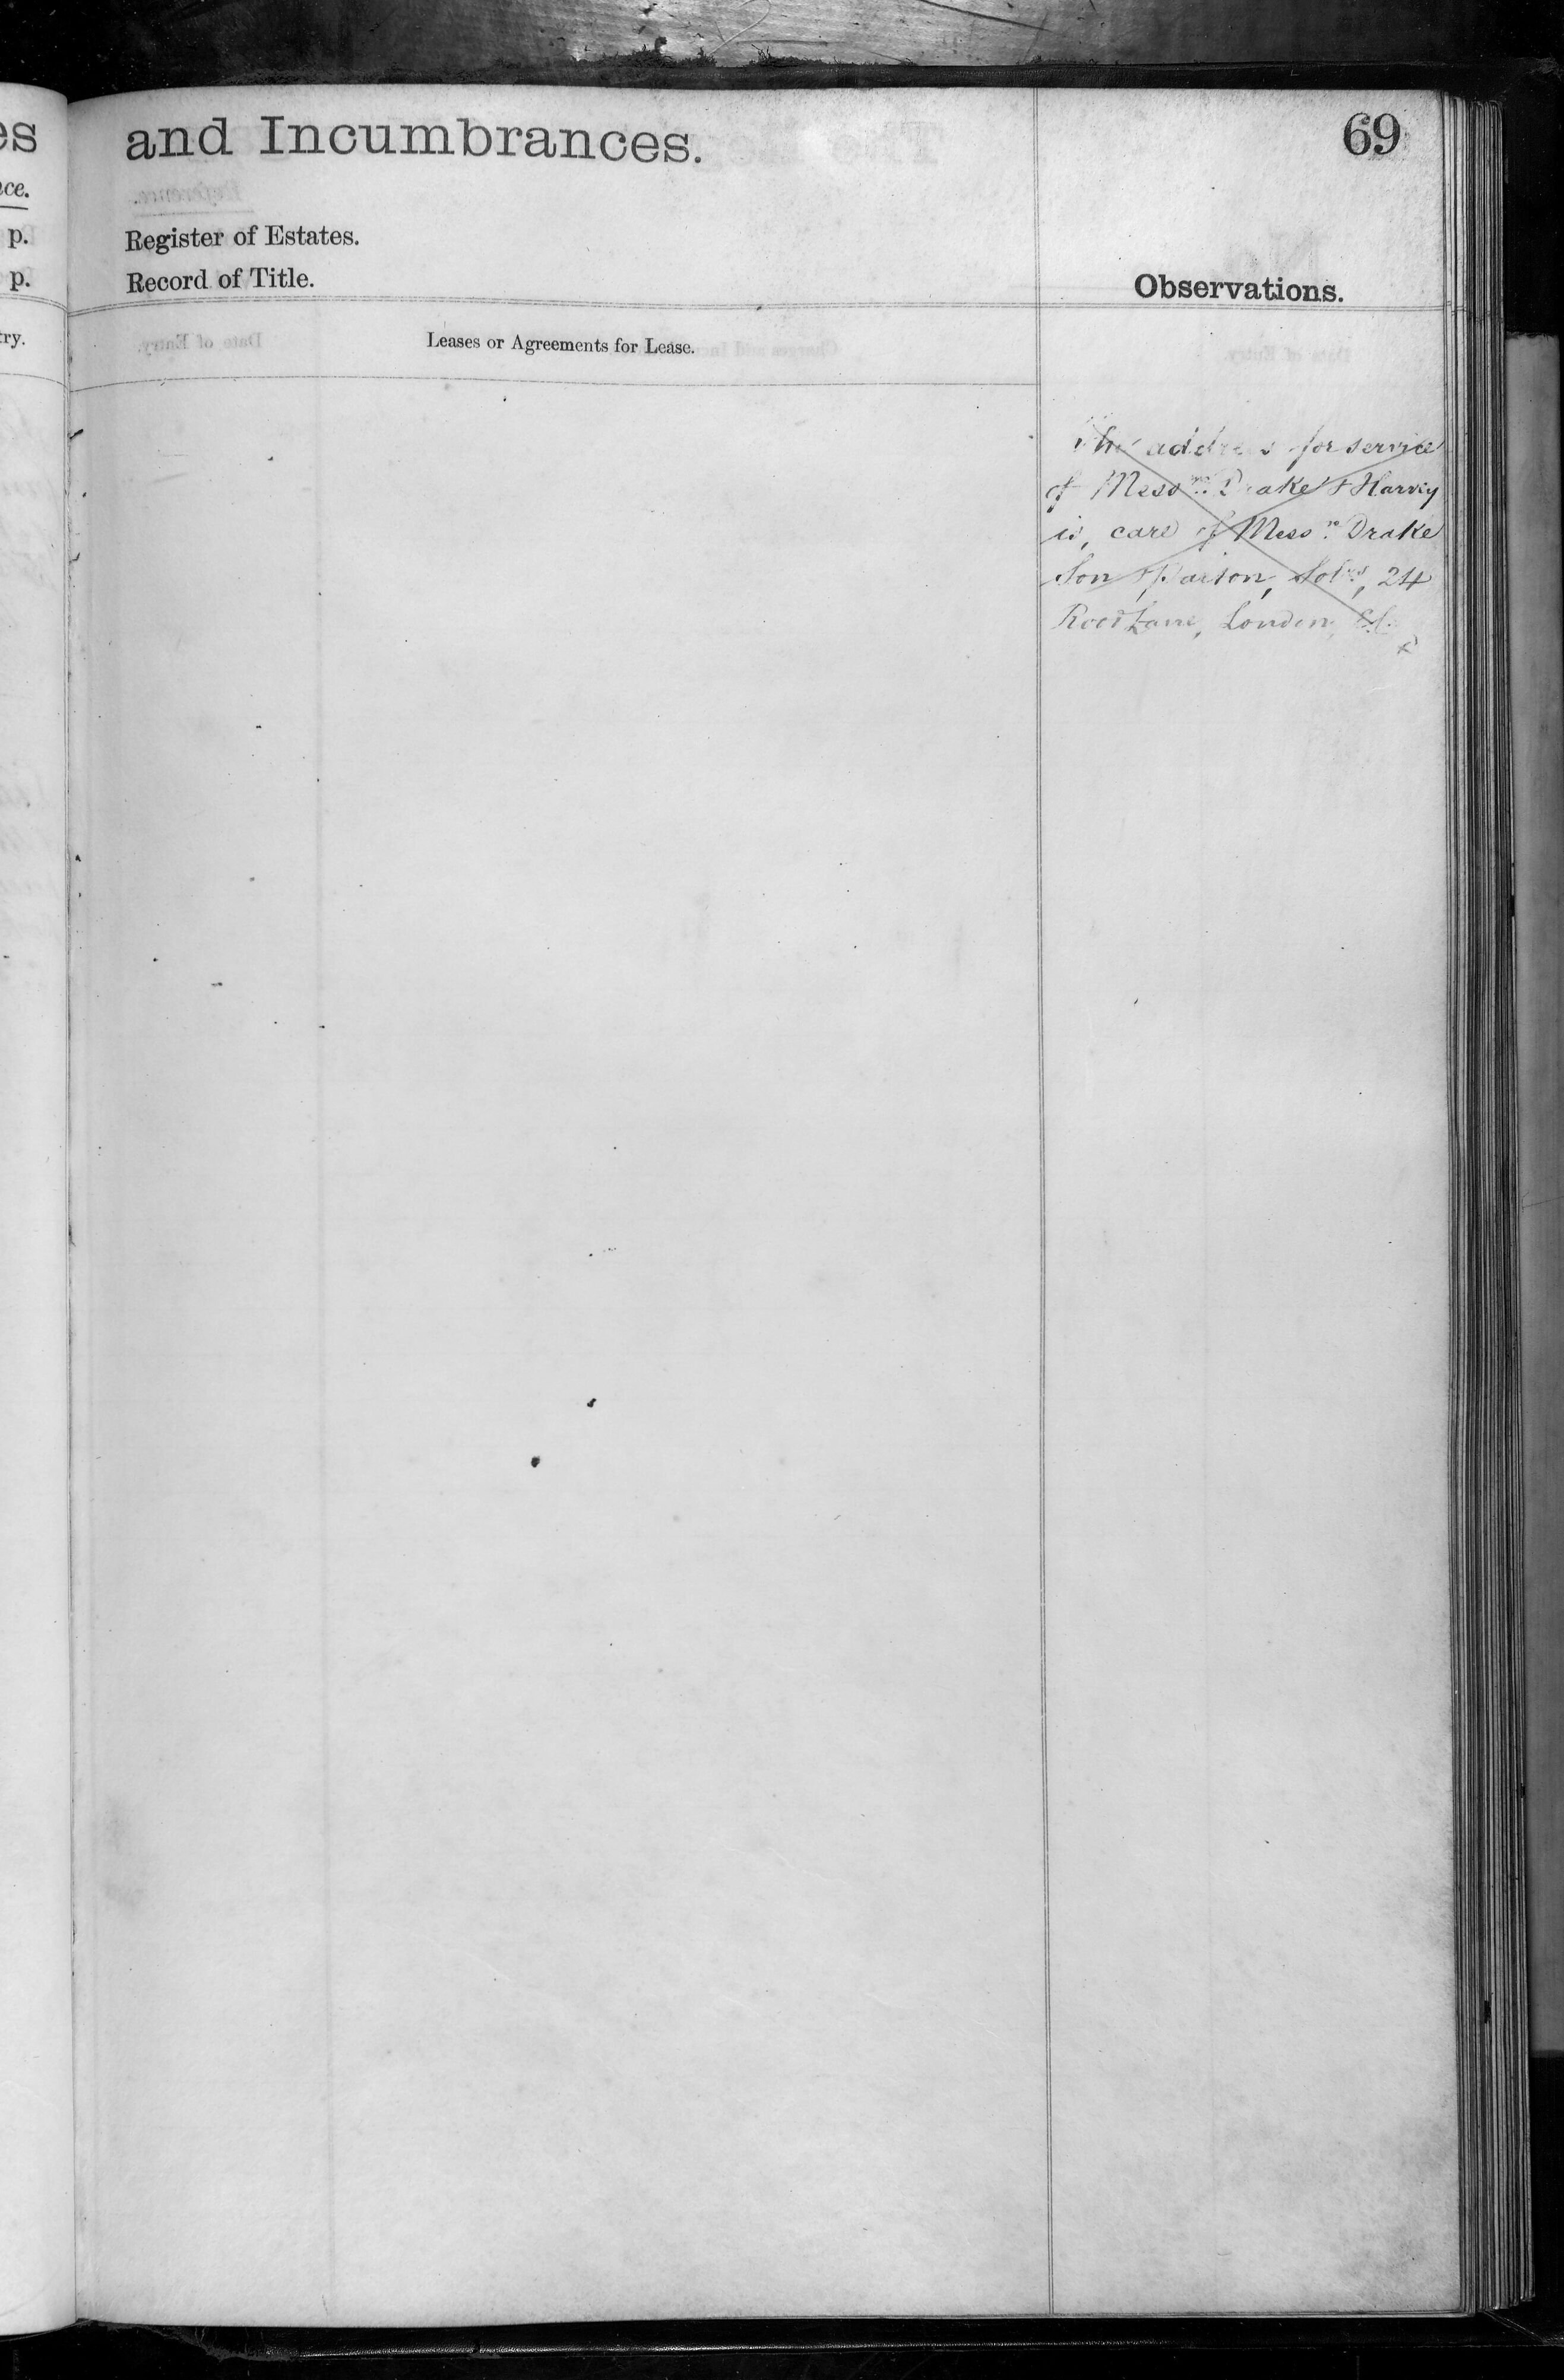 and Incumbrances.
69
ce.
p.
Register of Estates.
p.
Record of Title.
Observations.
try.
Leases or Agreements for Lease.
The address for service
of Messrs. Drake & Harvey
is, care of Messrs. Drake
Son & Parton, Solrs, 24
Rood Lane, London, E.C.